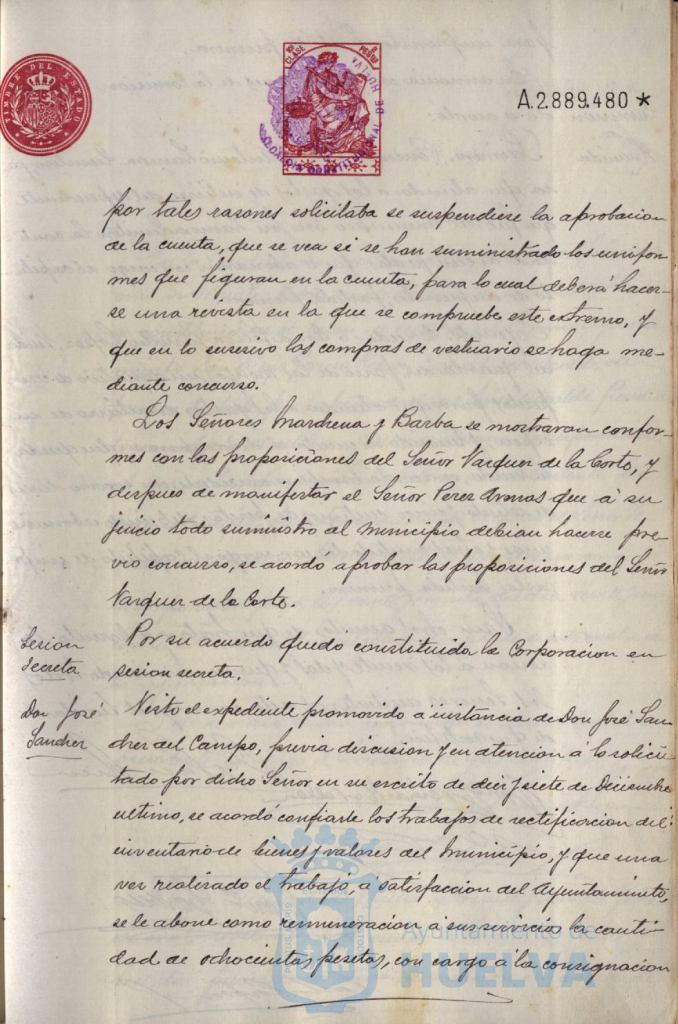 TIMBRE DEL ESTADO
CLASE
ALCALDIA CONSTITUCIONAL DE HUELVA
A.2.889.480 *
por tales razones solicitaba se suspendiese la aprobacion
de la cuenta, que se vea si se han suministrado los unifor-
mes que figuran en la cuenta, para lo cual deberá hacer-
se una revista en la que se compruebe este extremo, y
que en lo sucesivo las compras de vestuario se haga me-
diante concurso.
Los Señores Marchena y Barba se mostraran confor-
mes con las proposiciones del Señor Vazquez de la Corte, y
despues de manifestar el Señor Perez Arenas que á su
juicio todo suministro al municipio debian hacerse pre-
vio concurso, se acordó aprobar las proposiciones del Señor
Vazquez de la Corte.
Sesion
Secreta
Por su acuerdo quedó constituida la Corporacion en
sesion secreta.
Don José
Sanchez
Visto el expediente promovido á instancia de Don José San-
chez del Campo, previa discusion y en atencion á lo solici-
tado por dicho Señor en su escrito de diez y siete de Diciembre
ultimo, se acordó confiarle los trabajos de rectificacion del
inventario de bienes y valores del Municipio, y que una
vez realizado el trabajo, á satisfaccion del Ayuntamineto,
se le abone como remuneracion a sus servicios la canti-
dad de ochocientas pesetas, con cargo a la consignacion
Ayuntamiento de
HUELVA